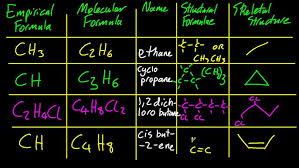 Empirical Formula Molecular Formula Name Structural Formulae Skeletal Structure
CH3 C2H6 ethane -C-C- OR CH3CH3
CH C3H6 cyclo propane C C-C (CH2)3
C2H4Cl C4H8Cl2 1,2 dichloro butane -C-C-C-C- Cl Cl Cl Cl
CH C4H8 cis but-2-ene C=C